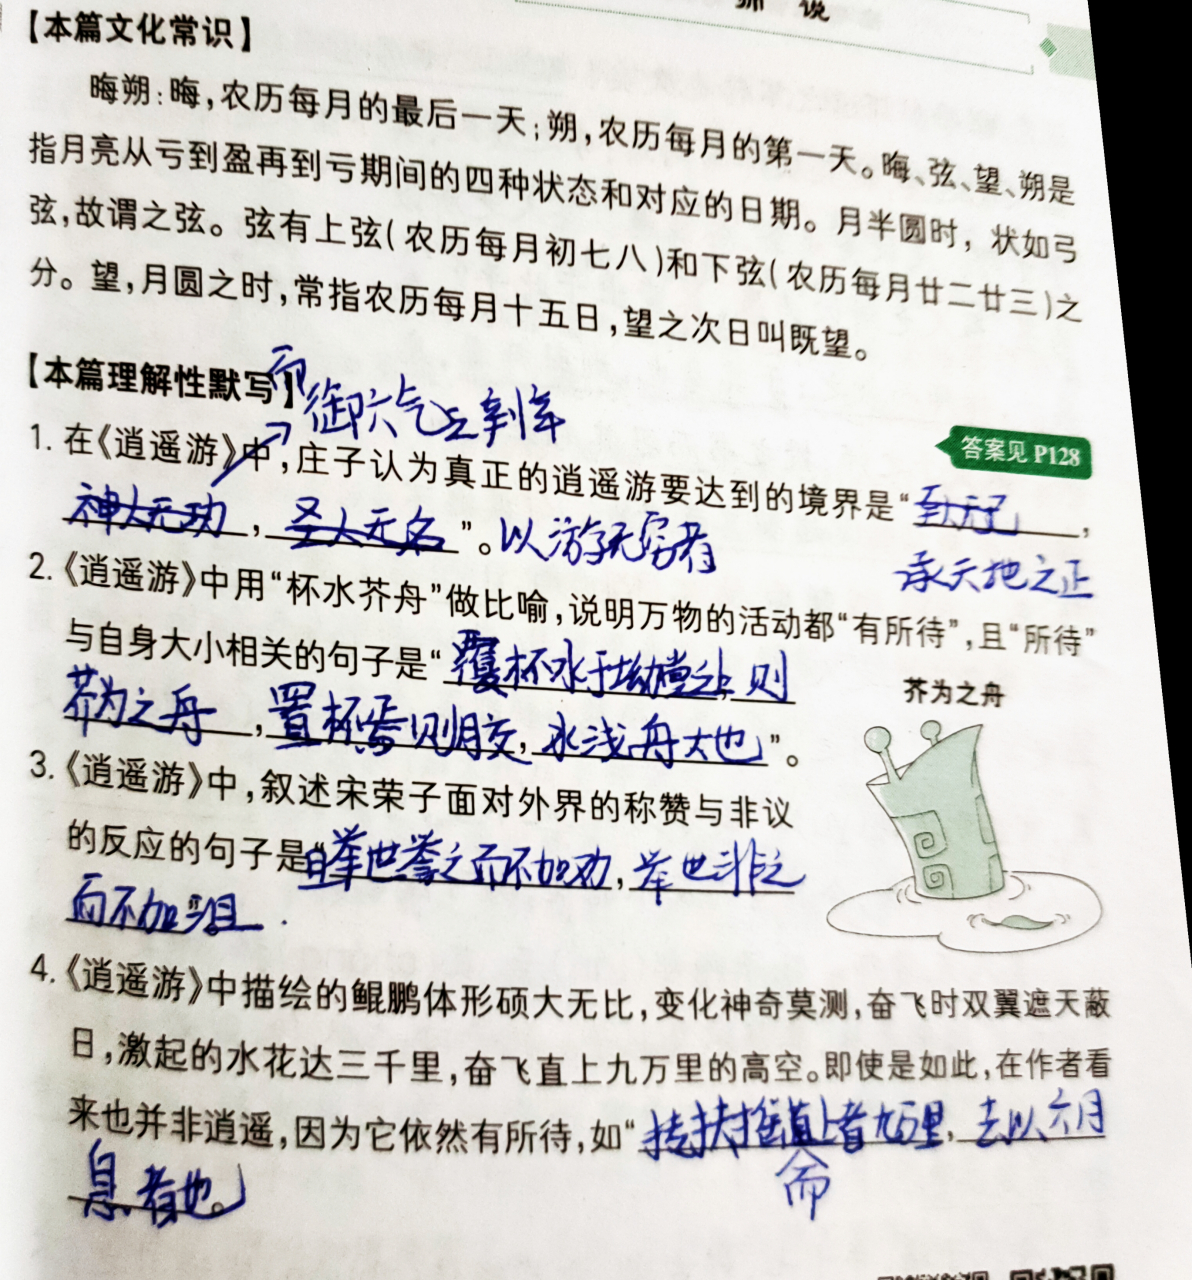 师说
【本篇文化常识】
晦朔:晦,农历每月的最后一天;朔,农历每月的第一天。晦、弦、望、朔是
指月亮从亏到盈再到亏期间的四种状态和对应的日期。月半圆时，状如弓
弦,故谓之弦。弦有上弦(农历每月初七八)和下弦(农历每月廿二廿三)之
分。望,月圆之时,常指农历每月十五日,望之次日叫既望。
【本篇理解性默写】
而
御六气之
答案见 P128
1. 在《逍遥游》中,庄子认为真正的逍遥游要达到的境界是“
神人无功，圣人无名”。以游无穷者
承天地之正
2.《逍遥游》中用“杯水芥舟”做比喻,说明万物的活动都“有所待”,且“所待”
与自身大小相关的句子是“覆杯水于坳堂之上,则
芥为之舟,置杯焉则胶,水浅舟大也”。
芥为之舟
3.《逍遥游》中,叙述宋荣子面对外界的称赞与非议
的反应的句子是“且举世誉之而不加劝,举世非之
而不加沮.
4.《逍遥游》中描绘的鲲鹏体形硕大无比,变化神奇莫测,奋飞时双翼遮天蔽
日,激起的水花达三千里,奋飞直上九万里的高空。即使是如此,在作者看
来也并非逍遥,因为它依然有所待,如“扶摇而上者九万里,去以六月
息者也。